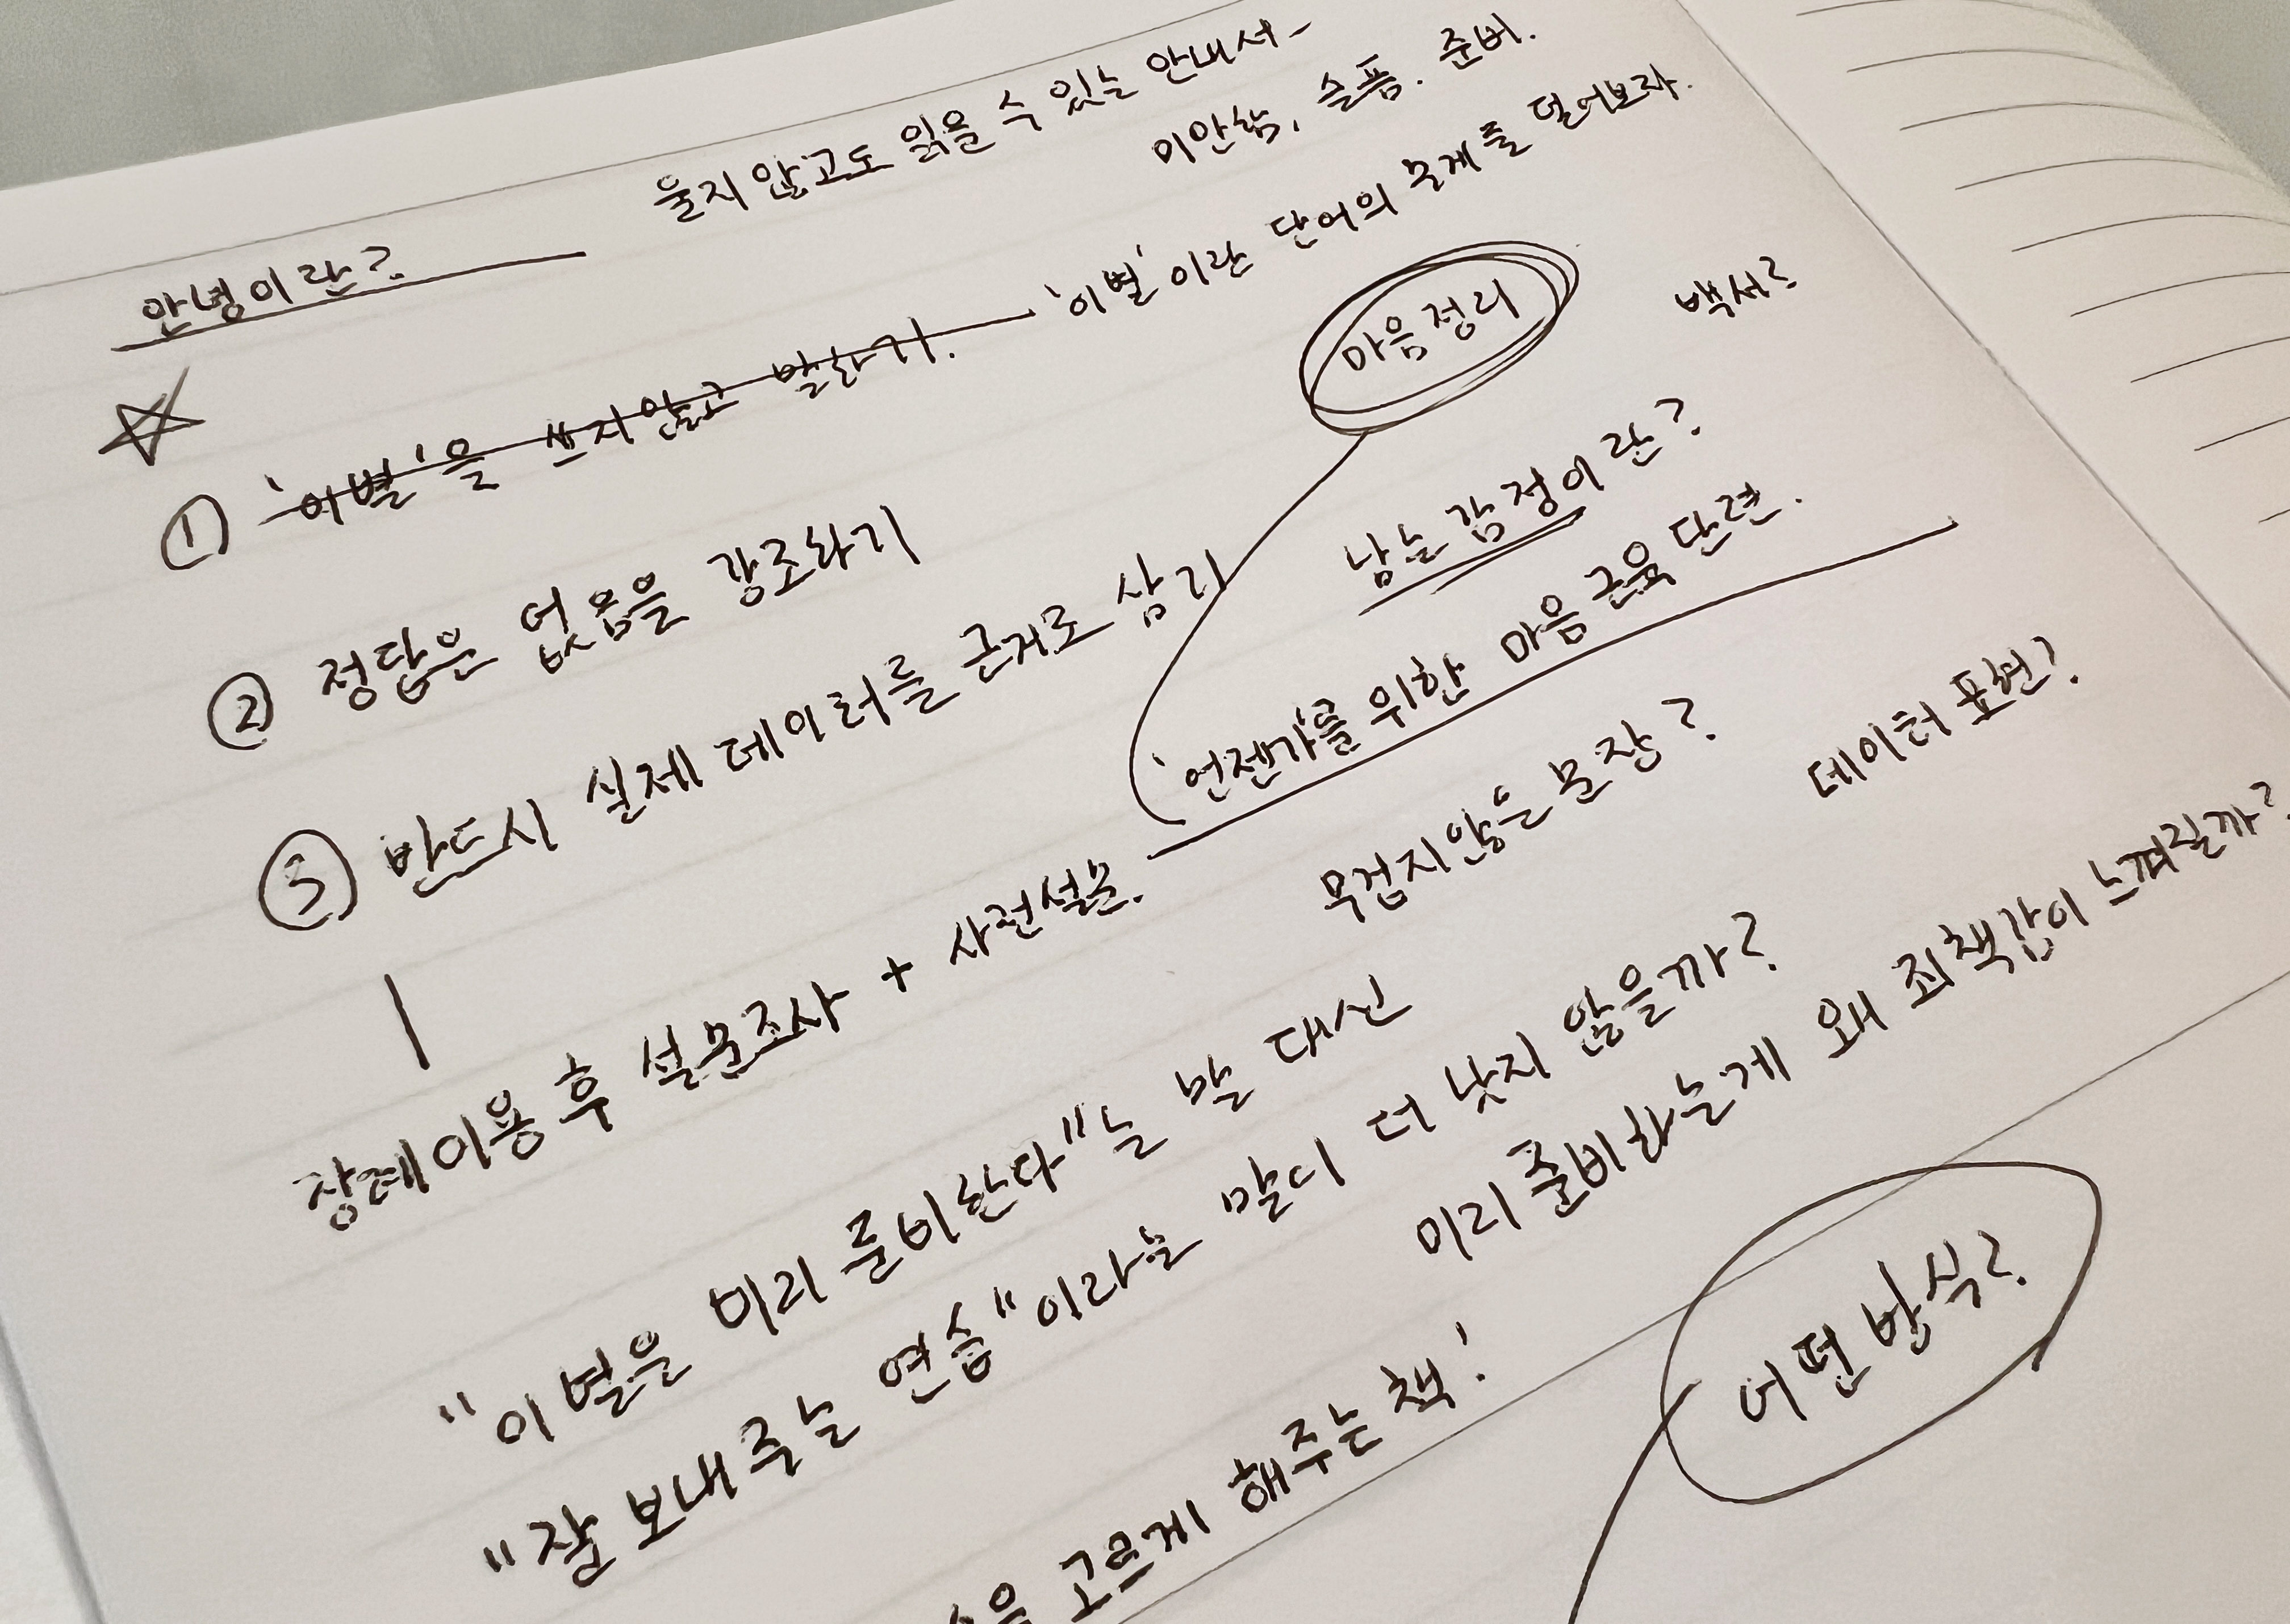 울지 않고도 읽을 수 있는 안내서-
미안함, 슬픔. 준비.
안녕이란?
'이별'을 쓰지않고 말하기.
'이별'이란 단어의 무게를 덜어보자.
마음정리
백서?
① 
② 정답은 없음을 강조하기
남는 감정이란?
③ 반드시 실제 데이터를 근거로 삼기
'언젠가'를 위한 마음 근육 단련.
장례이용 후 설문조사 + 사전설문.
무겁지않은 문장?
데이터 표현?
"이별을 미리 준비한다"는 말 대신
"잘 보내주는 연습"이라는 말이 더 낫지 않을까?
미리 준비하는게 왜 죄책감이 느껴질까?
고르게 해주는 책!
어떤 방식?